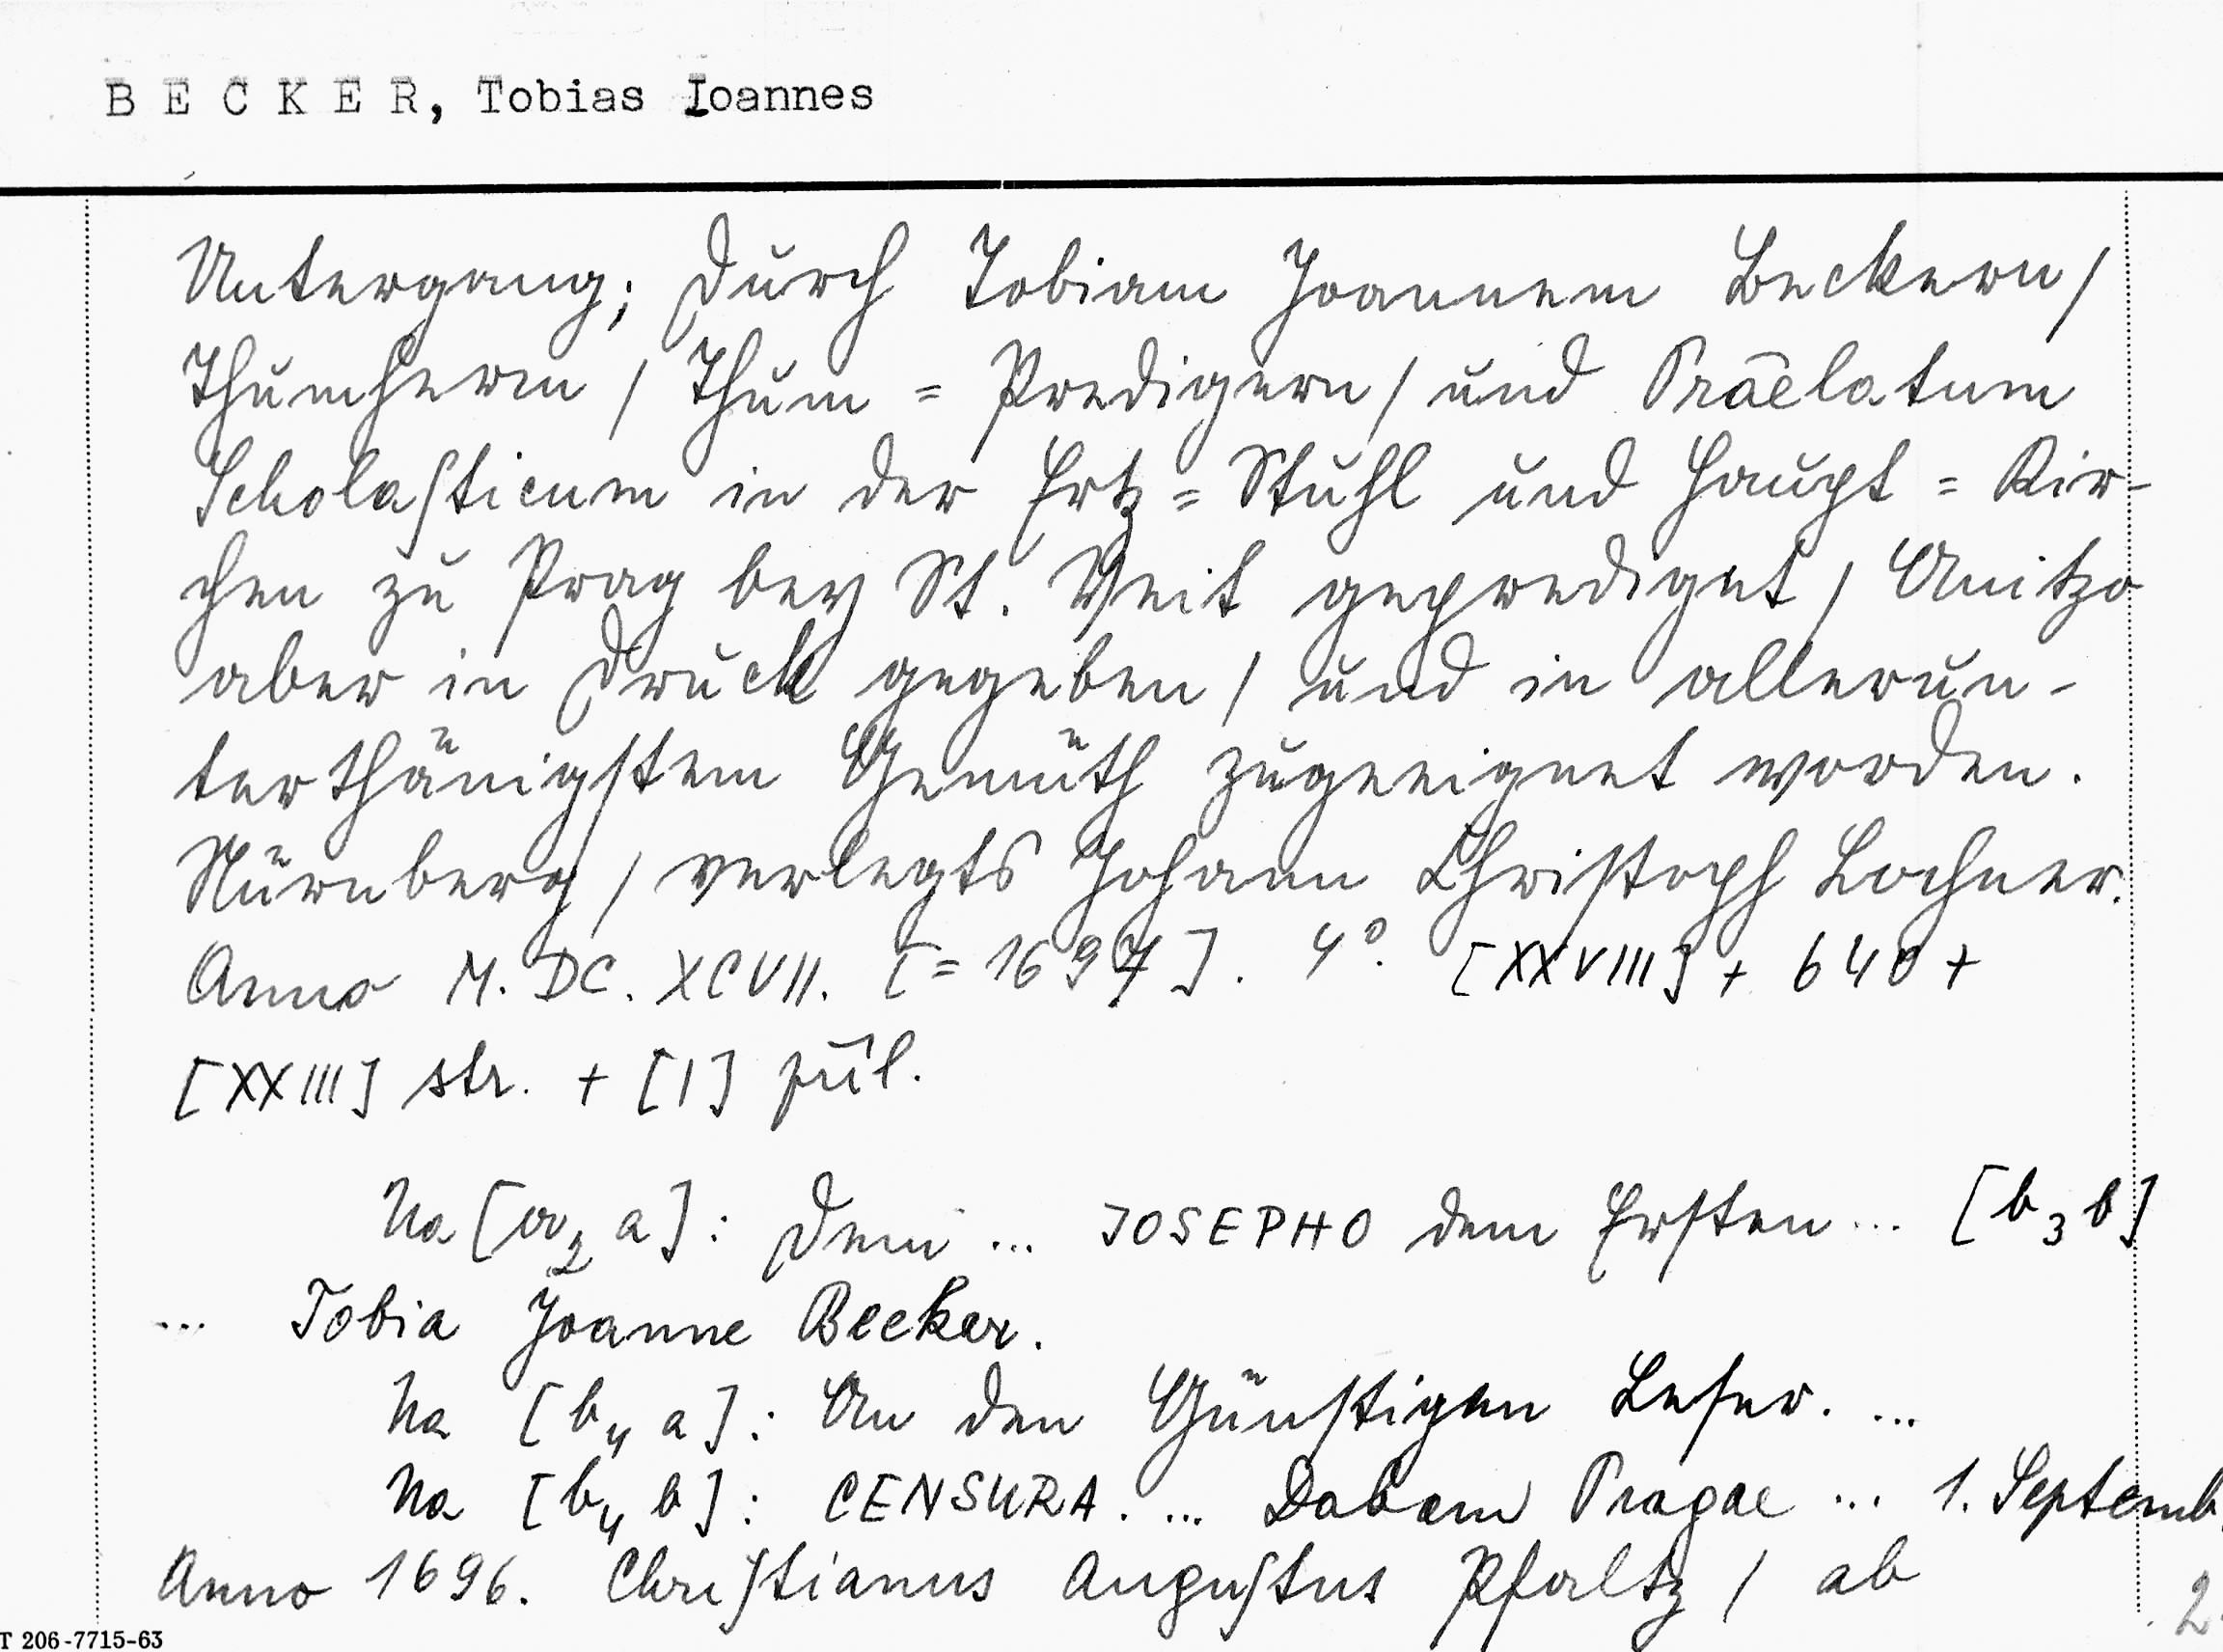 BECKER, Tobias Ioannes
Untergang; durch Tobiam Joannem Beckern/
Thumherrn / Thum = Predigern / und Præelatum
Scholaſticum in der Ertz = Stuhl und Haupt = Kir-
chen zu Prag bey St. Veit geprediget / Anitzo
aber in Druck gegeben / und in allerun-
terthänigſtem Gemüth zugeeignet worden.
Nürnberg / verlegts Johann Chriſtoph Lochner.
Anno M. DC. XCVII. [= 1697]. 4°. [XXVIII] + 640 +
[XXIII] str. + [1] příl.
Na [a₂ a]: Dem ... JOSEPHO dem Erſten ... [b₃ b]
... Tobia Joanne Becker.
Na [b₄ a]: An den Günſtigen Leſer. ...
Na [b₄ b]: CENSURA. ... Dabam Pragae ... 1. Septemb.
Anno 1696. Chriſtianus Auguſtus Pfaltz / ab
T 206-7715-63
2